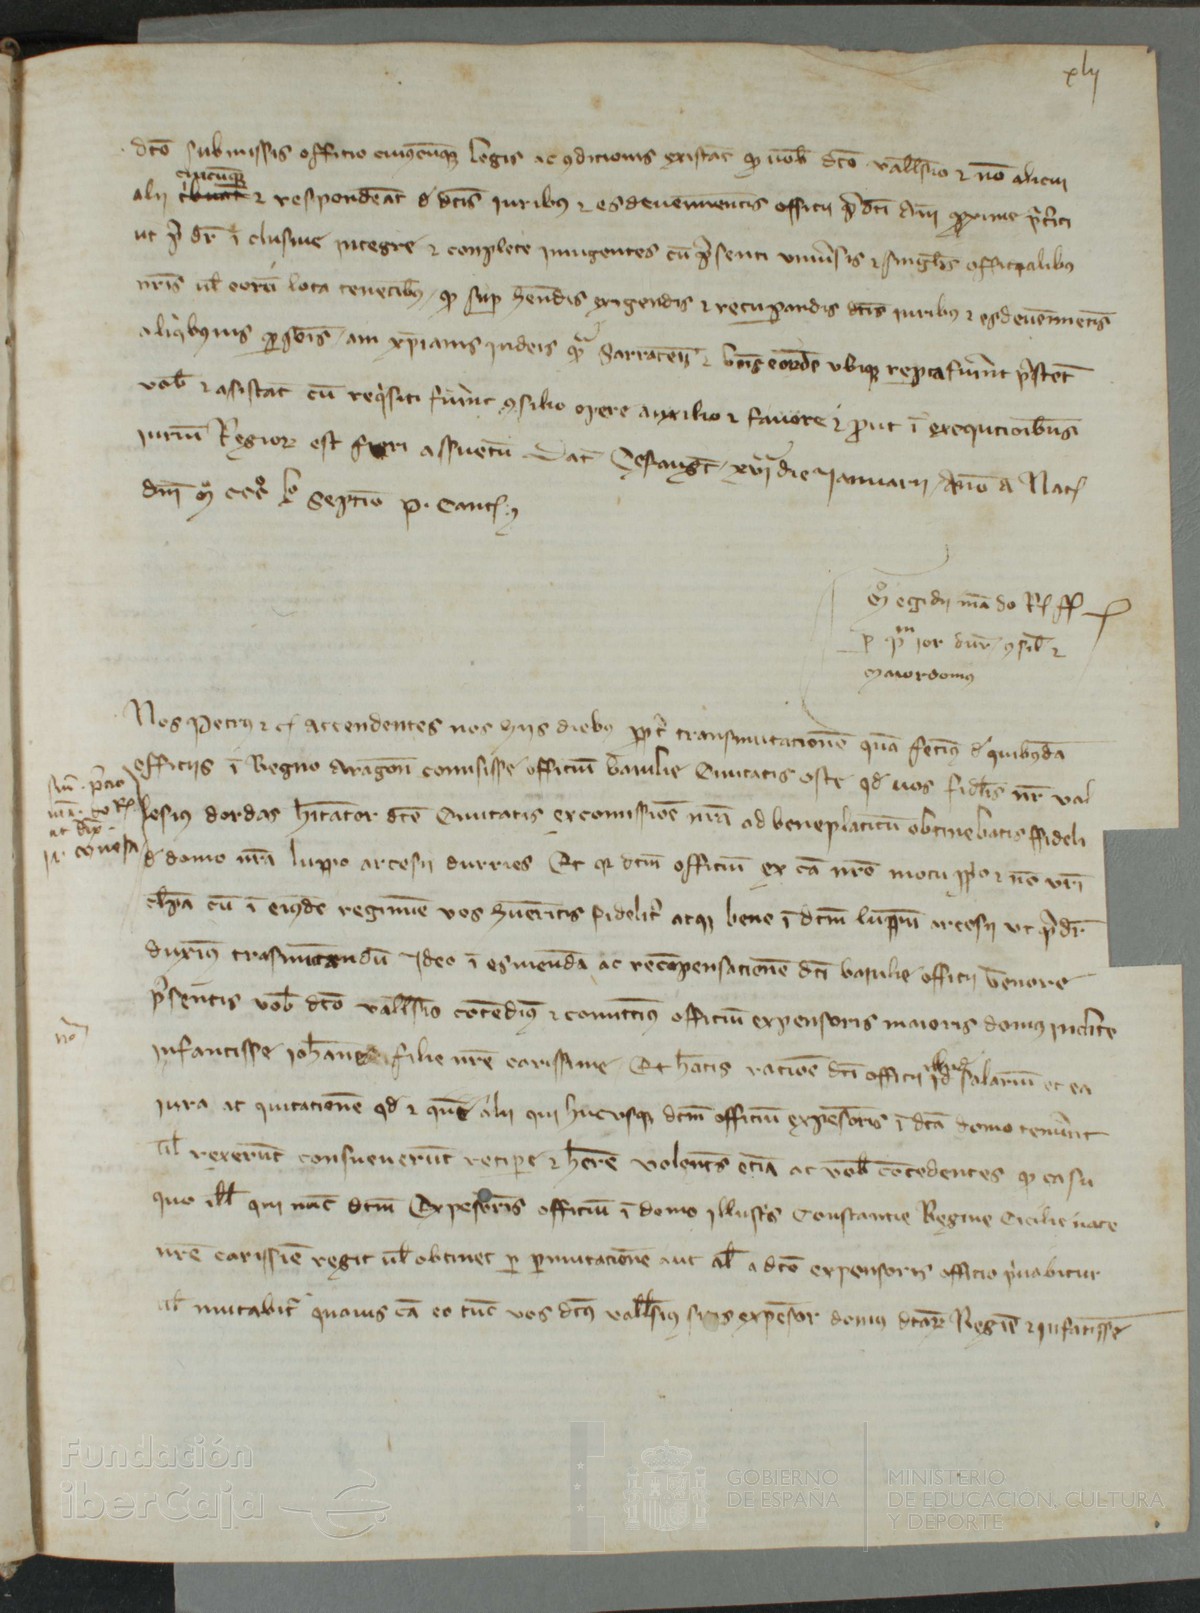 xlij
dco submissis officio cuiuscumque legis ac condicionis existat quod vob dco vallesio et non alicui
cuicumque
alii et respondeant de dctis iuribus et esdevenimentis officii predci Anni proxime preteriti
ut predr inclusive integre et conplete iniungentes cum presenti universis et singulis officialibus
nris vel eorum loca tenentibus quod super hendis exigendis et recuperandis dctis iuribus et esdevenimentis
a quibusvis personis xpianis iudeis quam Sarracenis et bonis eorundem ubique reperta fuerint prestent
vob et asistant cum requisiti fuerint consilio opere auxilio et favore prout in exequcionibus
iurium Regiorum est fieri assuetum Dat Cesaraugte xvi die Januarii Anno a Nat
dni Mo CCCo Lo Septimo P. Canc
egidii mandato R
consil et
maiordomus
Nos Petrus et c Attendentes nos hiis diebus propter transmutacionem quam fecimus de quibusdam
officiis in Regno Aragon comisisse officium baiulie Civitatis osce quod vos fidelis nr val
lesius dordas hitator dce Civitatis ex comissione nra ad beneplacitum obtinebatis ffideli
de domo nra luppo arcesii durries Et quia dcm officium ex causa nre motu proprio et non vri
culpa cum in eiusdem regimine vos hueritis fideliter atque bene in dcm luppum arcesii ut predr
duximus trasmutandum Ideo in esmendam ac recompensacionem dci baiulie officii tenore
presentis vob dco vallesio concedimus et comittimus officium expensoris maioris domus inclite
infantisse Iohanne filie nre carissime Et hatis racione dci officii illud salarium et ea
iura ac quitacionem quod et que alii qui hucusque dcm officium expensoris in dca domo tenuerint
vel rexerunt consueverunt recipere et here volentes etiam ac vob concedentes quod casu
quo ill qui nunc dcm Expensoris officium in domo illustris Constancie Regine Cicilie nate
nre carissime regit vel obtinet per permutacionem aut al a dco expensoris officio privabitur
vel mutabitur quavis causa eo tunc vos dcus vallesius sitis expensor domus dcarum Regine et infantisse
Fundación
iberCaja
GOBIERNO
DE ESPAÑA
MINISTERIO
DE EDUCACIÓN, CULTURA
Y DEPORTE